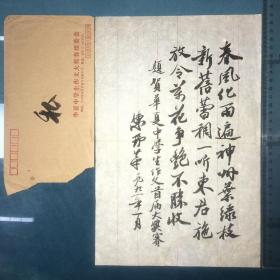 春風化雨遍神州葉綠枝
新蓓蕾稠一听東君施
放令萬花爭艷不勝收
題賀華夏中學生作文首屆大獎賽
一九九一年一月
华夏中学生作文大奖赛组委会